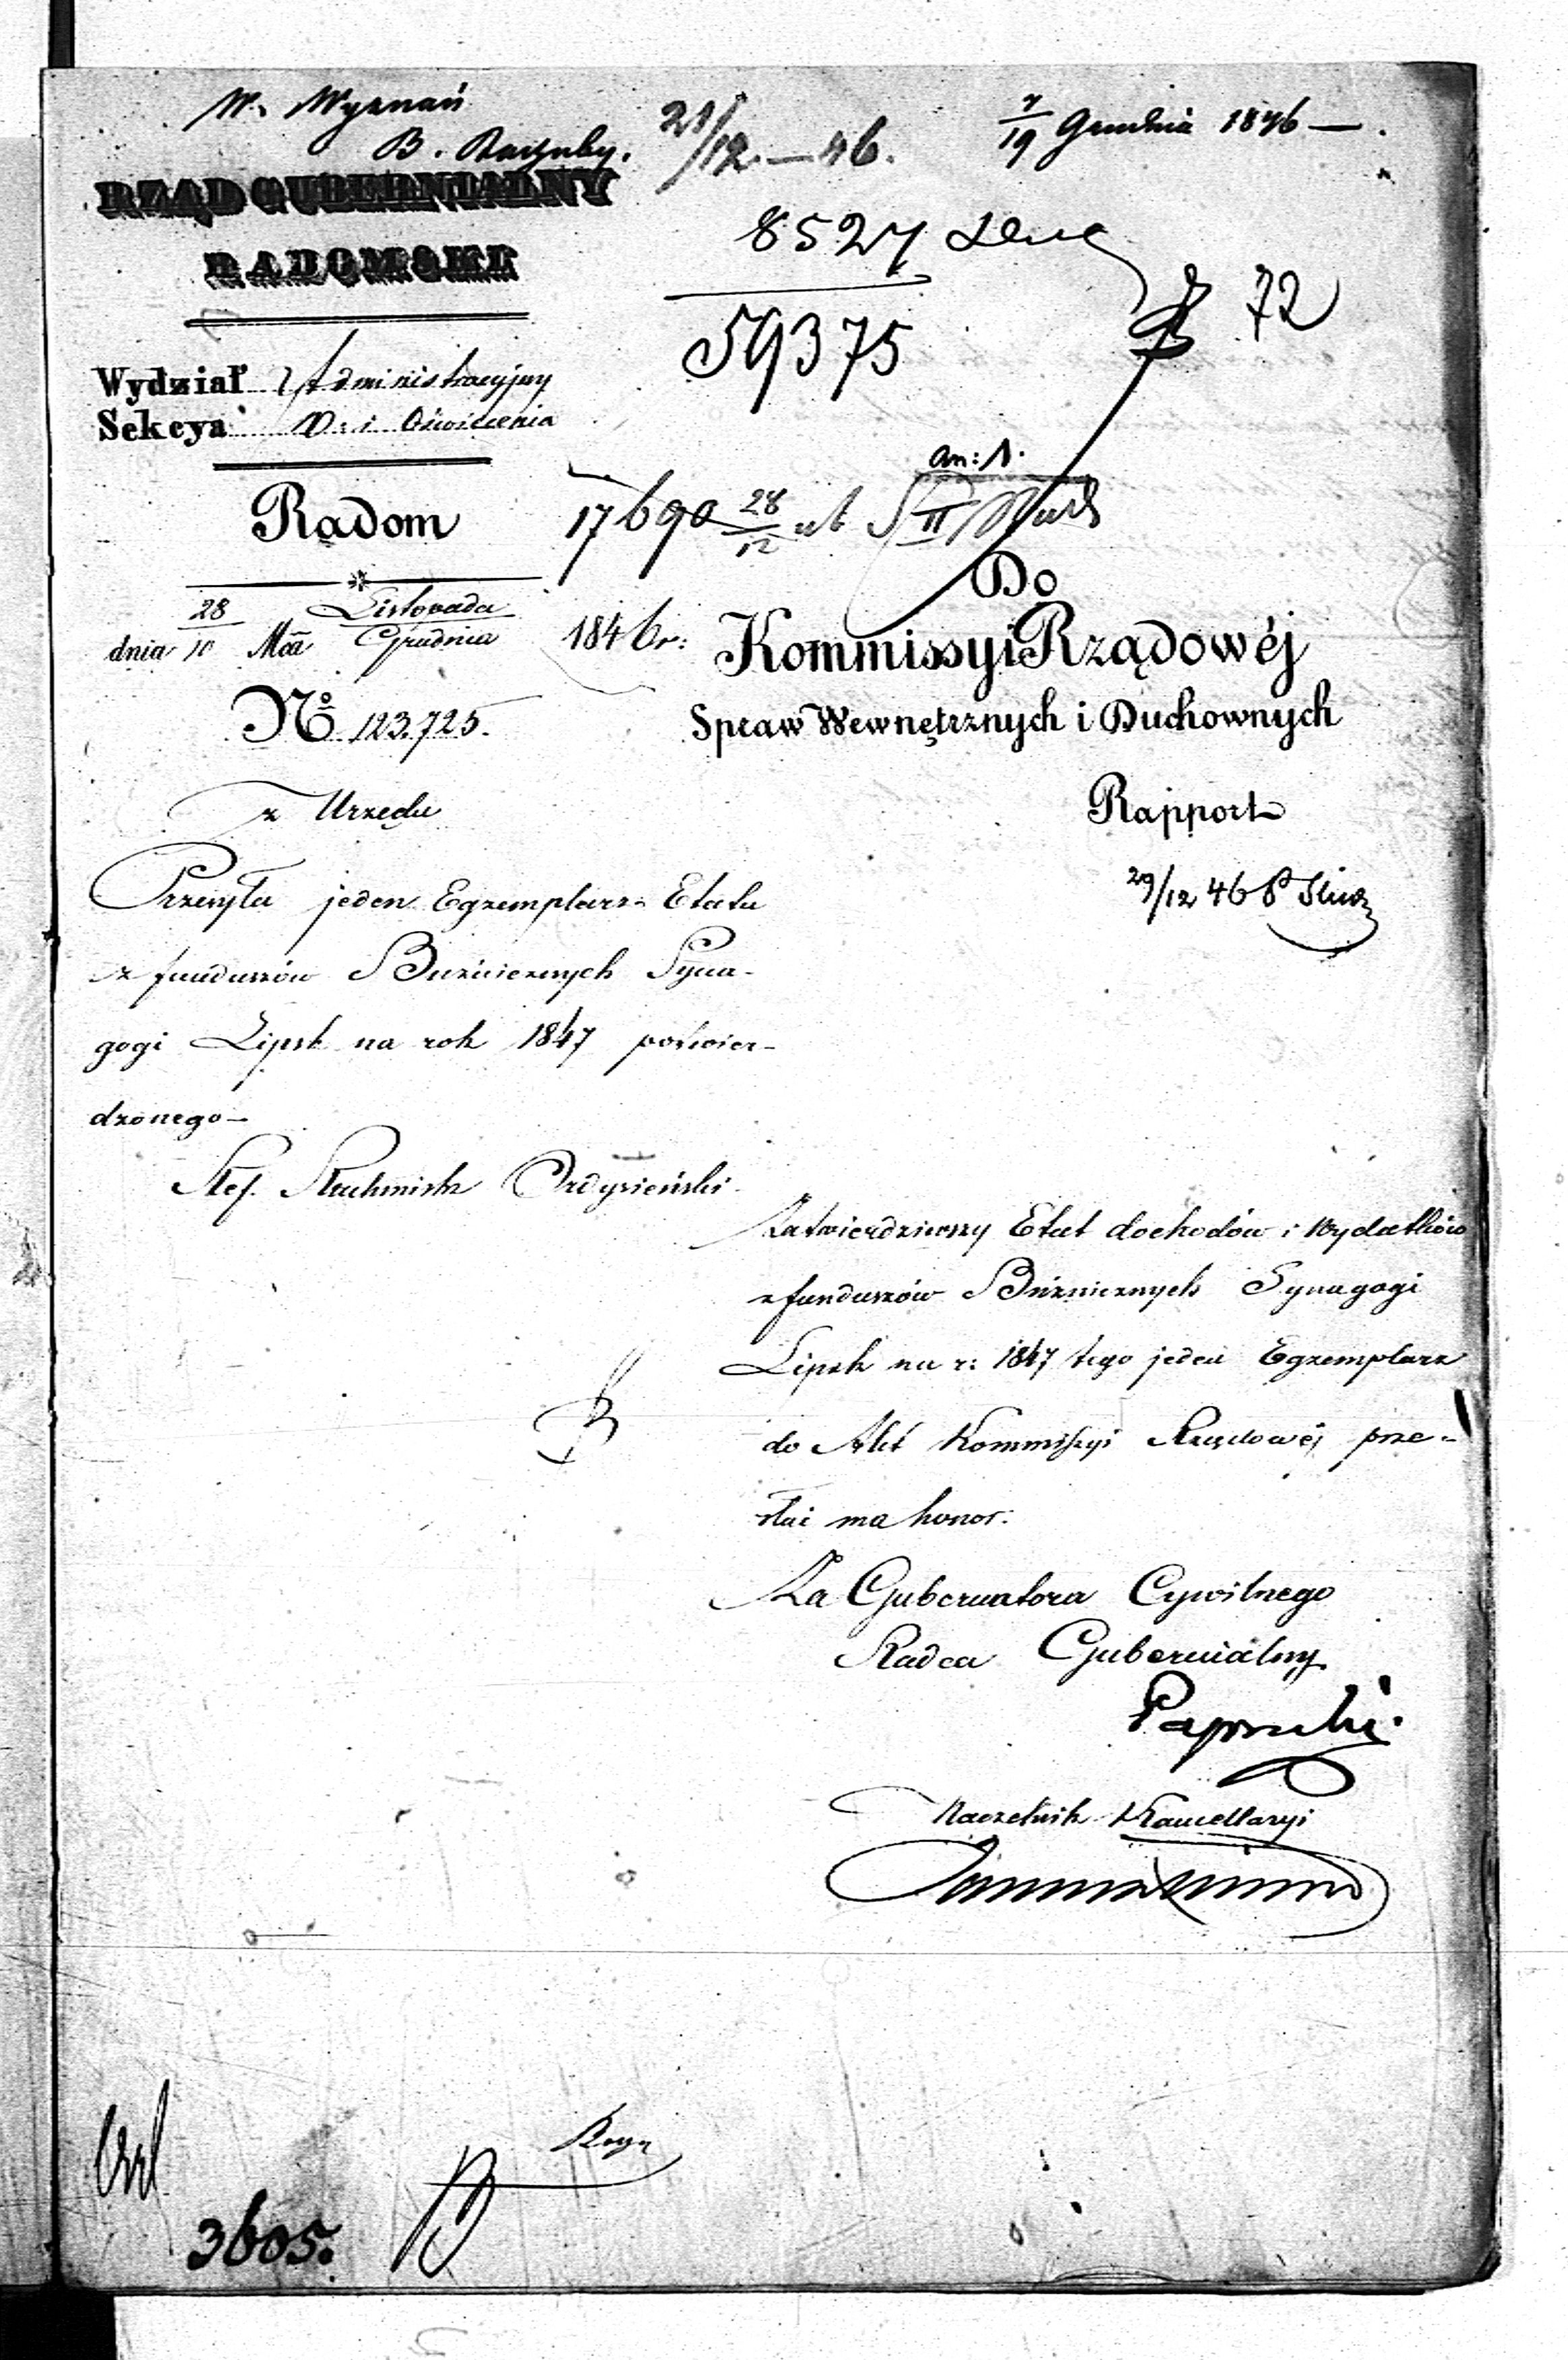 W. Wyznań
21/12 — 46.
7/19 Grudnia 1846 —.
RZĄD GUBERNIALNY
RADOMSKI
8527
59375
72
Wydział Administracyjny
Sekcya W. i Oświecenia
an: 1.
Radom
17690 28/12
Do
dnia 28/10 Mca Listopada/Grudnia 1846 r:
Kommissyi Rządowéj
Spraw Wewnętrznych i Duchownych
No 123.725.
z Urzędu
Rapport
29/12 46
Przesyła jeden Egzemplarz Etatu
z funduszów Bużnicznych Syna-
gogi Lipsk na rok 1847 potwier-
dzonego —
Zatwierdziwszy Etat dochodów i Wydatków
z funduszów Bużnicznych Synagogi
Lipsk na r: 1847 tego jeden Egzemplarz
do Akt Kommissyi Rządowéj prze-
słać ma honor.
Za Gubernatora Cywilnego
Radca Gubernialny
Paprocki.
Naczelnik Kancellaryi
3605.